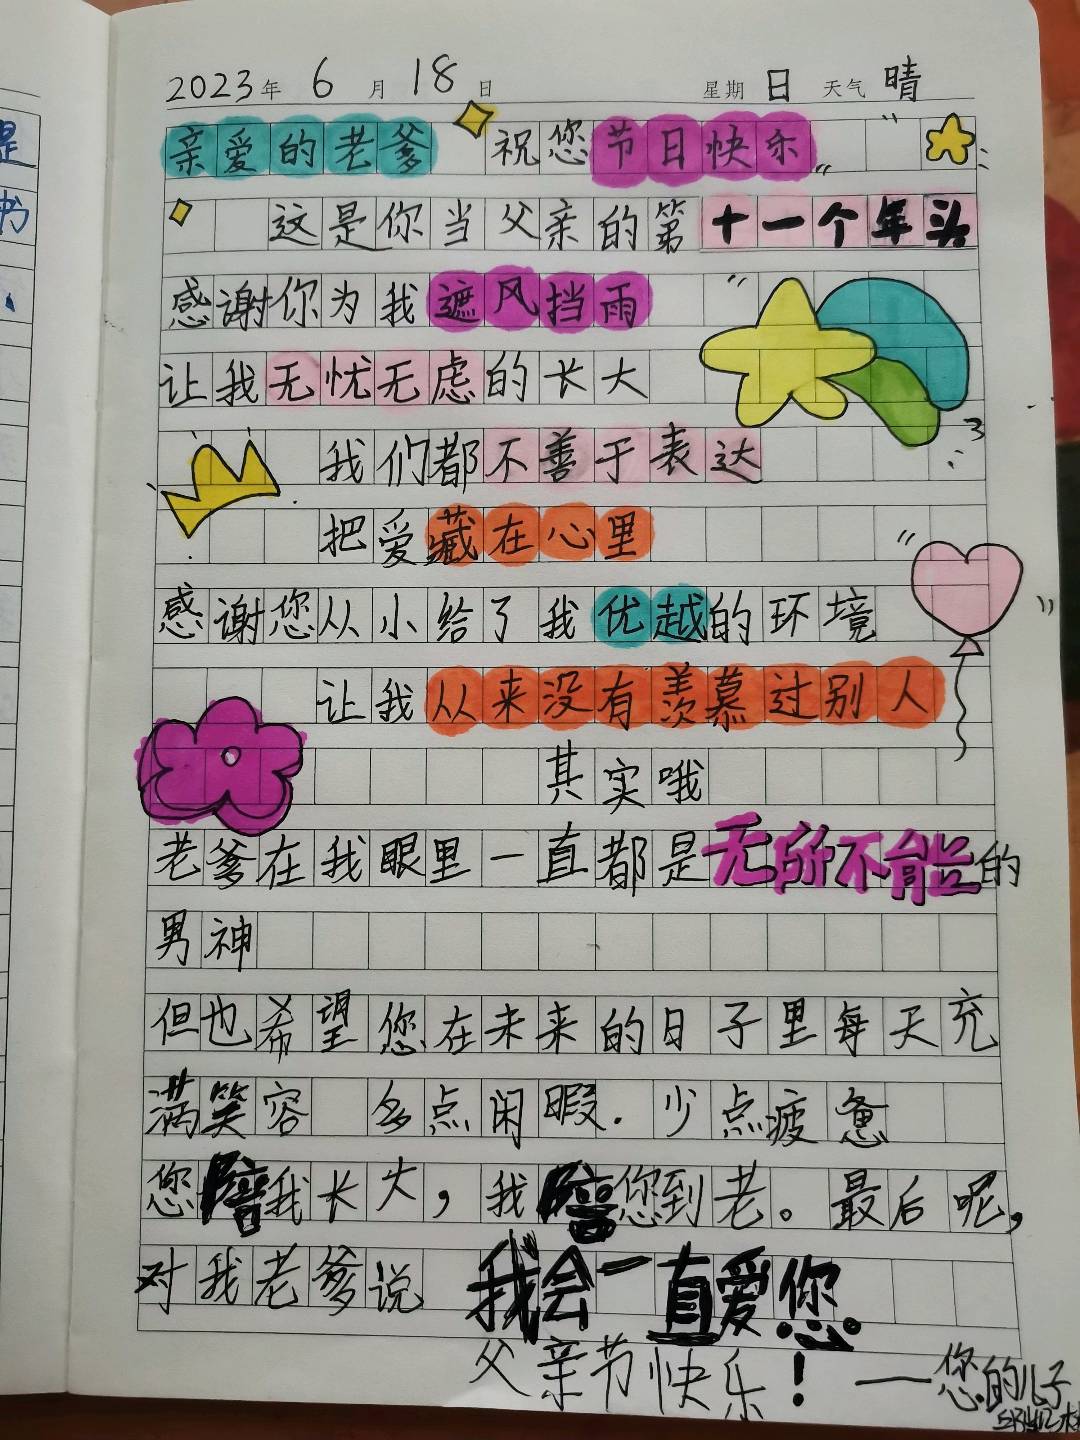 是
书
2023年 6月 18日 星期 日 天气 晴
亲爱的老爹 祝您节日快乐
这是你当父亲的第十一个年头
感谢你为我遮风挡雨
让我无忧无虑的长大
我们都不善于表达
把爱藏在心里
感谢您从小给了我优越的环境
让我从来没有羡慕过别人
其实哦
老爹在我眼里一直都是无所不能的
男神
但也希望您在未来的日子里每天充
满笑容 多点闲暇.少点疲惫
您陪我长大,我陪您到老。最后呢,
对我老爹说 我会一直爱您
父亲节快乐! ——您的儿子